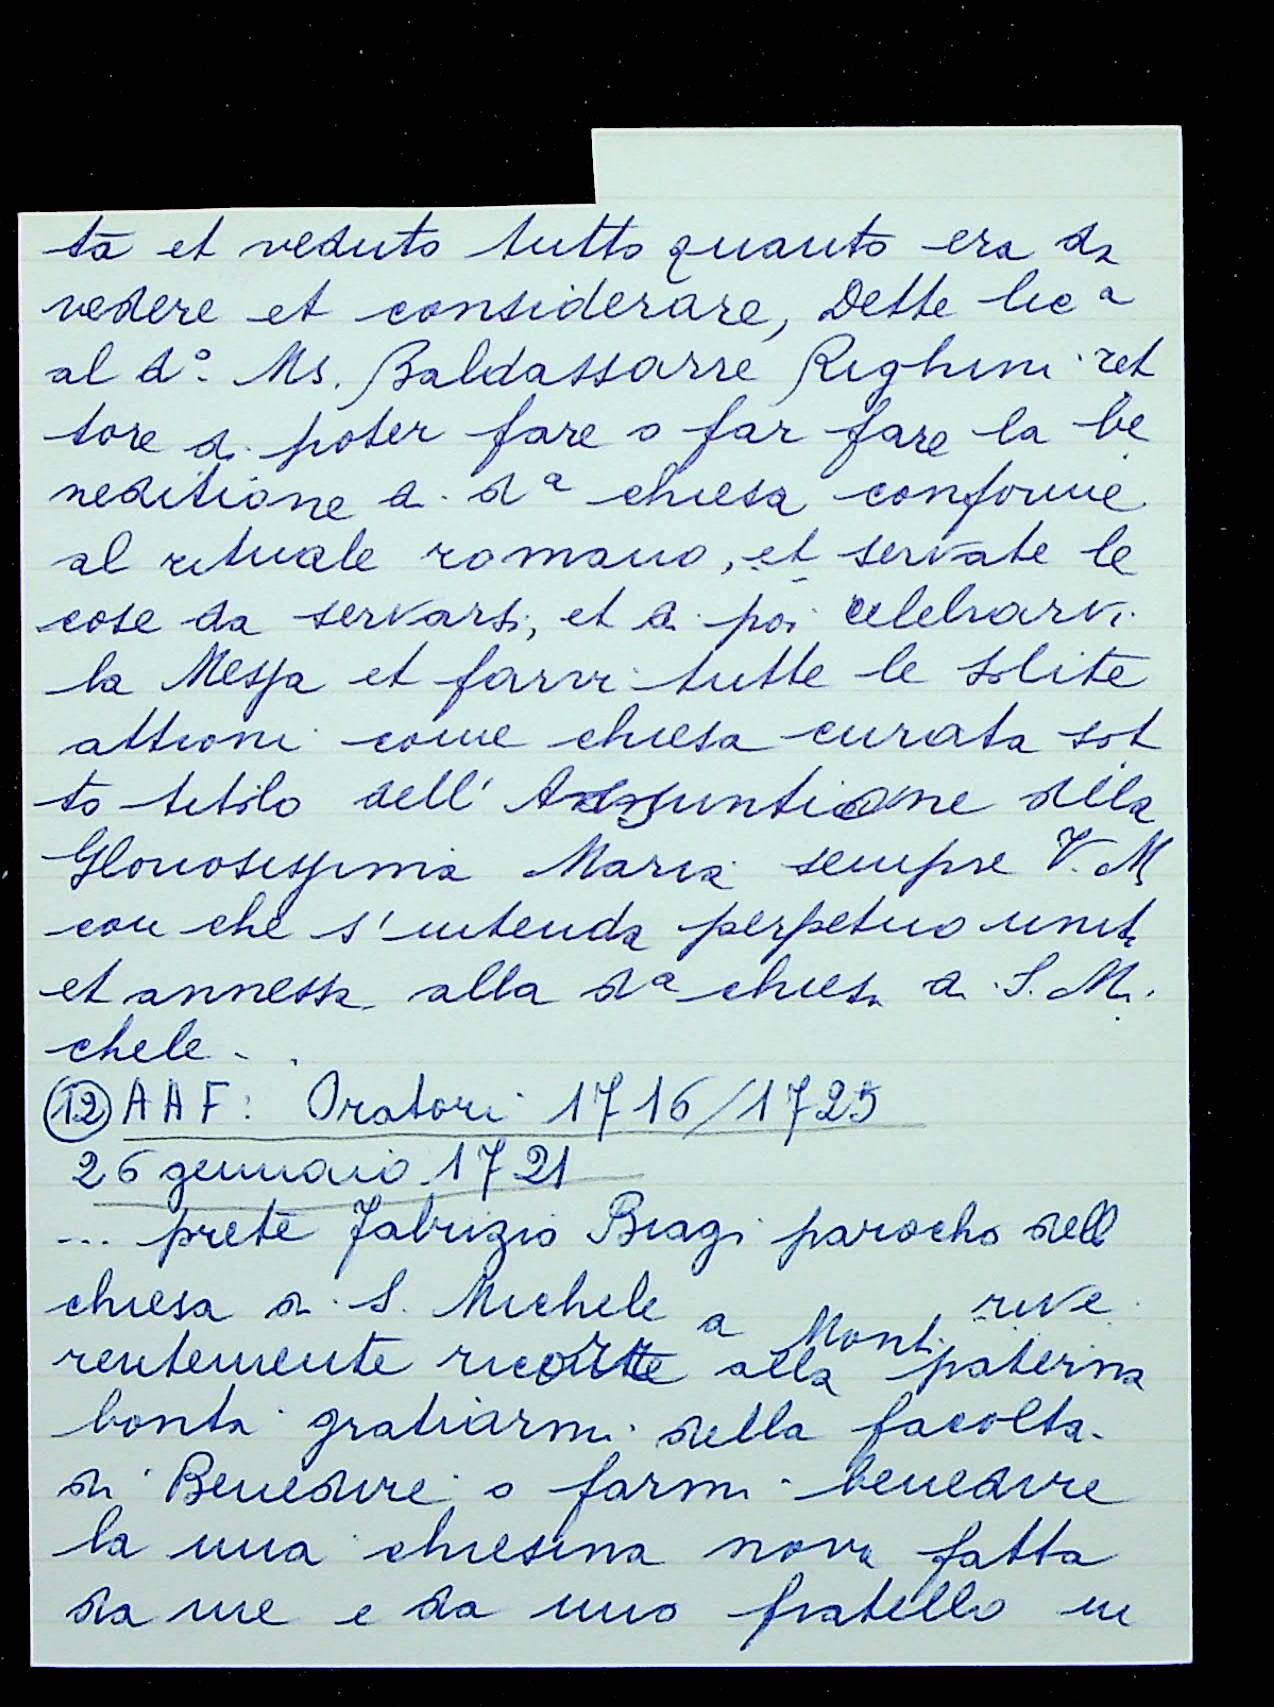 ta et veduto tutto quanto era da
vedere et considerare, Dette lic.a
al d.° Ms. Baldassarre Righini ret
tore di poter fare o far fare la be
neditione di d.a chiesa conforme
al rituale romano, et servate le
cose da servarsi, et di poi celebrarvi
la Messa et farvi tutte le solite
attioni come chiesa curata sot
to titolo dell' Assuntione della
Gloriosissima Maria sempre V. M
con che s'intenda perpetuo unita
et annessa alla d.a chiesa di S. Mi
chele.
(12) AAF: Oratori 1716/1725
26 gennaio 1721
... prete Fabrizio Biagi parocho dell
chiesa di S. Michele a Monti rive
rentemente ricorre alla paterna
bonta gratiarmi della facolta
di Benedire o farmi benedire
la mia chiesina nova fatta
da me e da mio fratello in